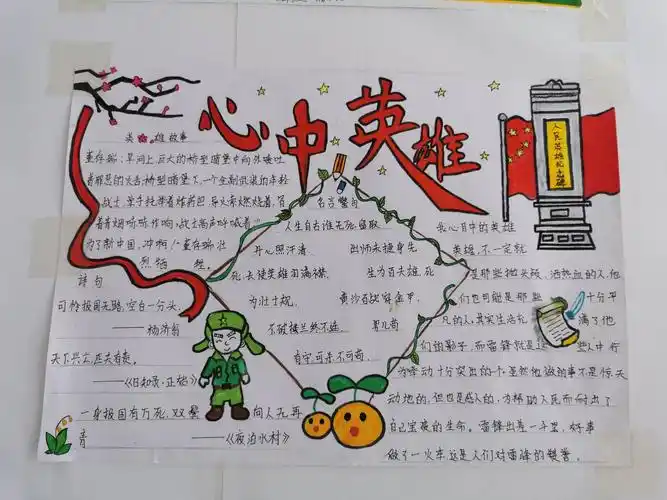 心中英雄
英雄故事
董存瑞:早河上巨大的桥型暗堡中向外喷吐
着罪恶的火舌;桥型暗堡下,一个全副武装的年轻
战士,单手托举着炸药包,导火索燃烧着,冒
着青烟哧哧作响,战士高声呼喊着:
为了新中国,冲啊!"董存瑞壮
烈牺牲。
诗句
可怜报国无路,空白一分头,
——杨济翁
天下兴亡,匹夫有责。
——《日知录·正始》
一身报国有万死,双鬓向人无再
青
——《夜泊水村》
名言警句
人生自古谁无死,留取
丹心照汗青。
出师未捷身先
死,长使英雄泪满襟。
生为百夫雄,死
为壮士规。
黄沙百战穿金甲,
不破楼兰终不还。
男儿尚
有守可杀不可苟。
我心目中的英雄
英雄,不一定就
是那些抛头颅、洒热血的人,他
们也可能是那些十分平
凡的人,其实生活充满了他
们的影子,而雷锋就是这些人中行
为举动十分突出的个,虽然他做的事不是惊天
动地的,但也是感人的,为帮助人民而付出了
自己宝贵的生命。雷锋出差一千里,好事
做了一火车,这是人们对雷锋的赞誉。
人民英雄纪念碑